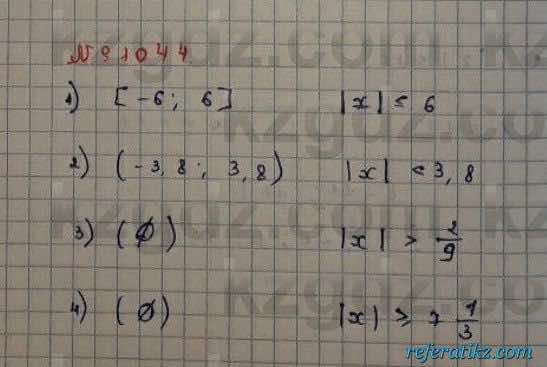 № 1044
1) [-6; 6] |x| ≤ 6
2) (-3,8; 3,8) |x| < 3,8
3) (∅) |x| > 2/9
4) (∅) |x| ≥ 7 1/3
kzgdz.com
referatikz.com